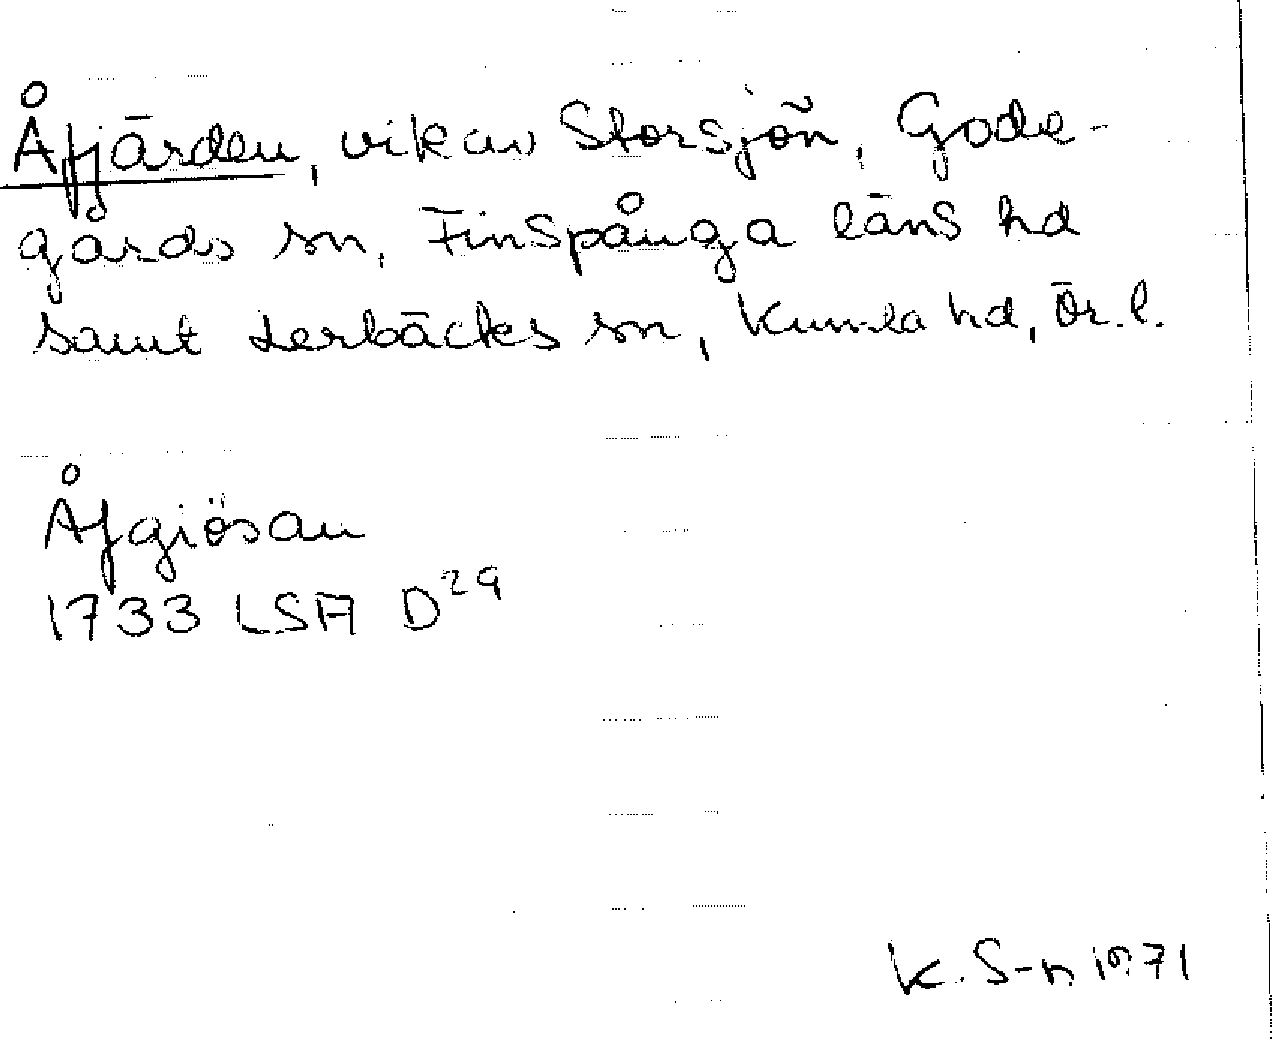 Åfjärden, vik av Storsjön, Gode-
gårds sn, Finspånga läns hd
samt Lerbäcks sn, Kumla hd, Ör. l.
Åfgiösan
1733 LSA D29
K. S-n 1971